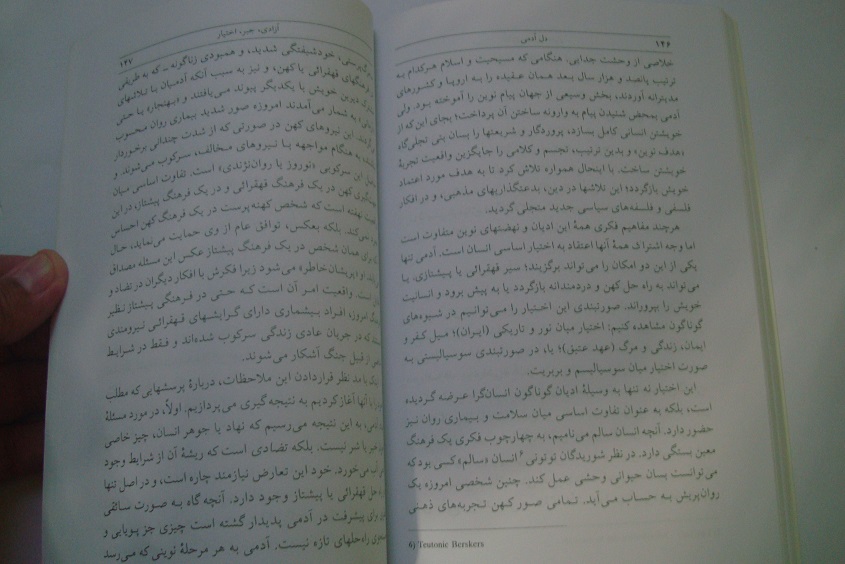 ۱۴۶
دل آدمی
خلاصی از وحشت جدایی. هنگامی که مسیحیت و اسلام هرکدام به
ترتیب پانصد و هزار سال بعد همان عقیده را به اروپا و کشورهای
مدیترانه آوردند، بخش وسیعی از جهان پیام نوین را آموخته بود. ولی
آدمی بمحض شنیدن پیام به وارونه ساختن آن پرداخت؛ بجای این که از
خویشتن انسانی کامل بسازد، پروردگار و شریعتها را بسان بتی تجلی‌گاه
«هدف نوین»، و بدین ترتیب، تجسم و کلامی را جایگزین واقعیت تجربهٔ
خویشتن ساخت. با اینحال همواره تلاش کرد تا به هدف مورد اعتماد
خویش بازگردد؛ این تلاشها در دین، بدعتگذاریهای مذهبی، و در افکار
فلسفی و فلسفه‌های سیاسی جدید متجلی گردید.
هرچند مفاهیم فکری همهٔ این ادیان و نهضتهای نوین متفاوت است
اما وجه اشتراک همهٔ آنها اعتقاد به اختیار اساسی انسان است. آدمی تنها
یکی از این دو امکان را می‌تواند برگزیند؛ سیر قهقرائی یا پیشتازی. یا
می‌تواند به راه حل کهن و دردمندانه بازگردد یا به پیش برود و انسانیت
خویش را بپروراند. صورتبندی این اختیار را می‌توانیم در شیوه‌های
گوناگون مشاهده کنیم: اختیار میان نور و تاریکی (ایران)؛ میل کفر و
ایمان، زندگی و مرگ (عهد عتیق)؛ یا، در صورتبندی سوسیالیستی به
صورت اختیار میان سوسیالیسم و بربریت.
این اختیار نه تنها به وسیلهٔ ادیان گوناگون انسان‌گرا عرضه گردیده
است، بلکه به عنوان تفاوت اساسی میان سلامت و بیماری روان نیز
حضور دارد. آنچه انسان سالم می‌نامیم، به چهارچوب فکری یک فرهنگ
معین بستگی دارد. در نظر شوریدگان توتونی۶ انسان «سالم» کسی بود که
می‌توانست بسان حیوانی وحشی عمل کند. چنین شخصی امروزه یک
روان‌پریش به حساب می‌آید. تمامی صور کهن تجربه‌های ذهنی
6) Teutonic Berskers
آزادی، جبر، اختیار
۱۴۷
پرستی، خودشیفتگی شدید، و همبودی زناگونه ـ که به طریقی
فرهنگهای قهقرائی یا کهن، و نیز به سبب آنکه آدمیان با تلاشهای
دیرین خویش با یکدیگر پیوند می‌یافتند و «بهنجار» یا حتی
به شمار می‌آمدند امروزه صور شدید بیماری روان محسوب
این نیروهای کهن در صورتی که از شدت چندانی برخوردار
به هنگام مواجهه با نیروهای مخالف، سرکوب می‌شوند و
این سرکوبی «نوروز یا روان‌نژندی» است. تفاوت اساسی میان
کهن در یک فرهنگ قهقرائی و در یک فرهنگ پیشتاز، در این
نهفته است که شخص کهنه پرست در یک فرهنگ کهن احساس
نمی‌کند. بلکه بعکس، توافق عام از وی حمایت می‌نماید، حال
برای همان شخص در یک فرهنگ پیشتاز عکس این مسئله مصداق
او «پریشان‌خاطر» می‌شود زیرا فکرش با افکار دیگران در تضاد و
است. واقعیت امر آن است که حتی در فرهنگی پیشتاز نظیر
امروز، افراد بیشماری دارای گرایشهای قهقرائی نیرومندی
که در جریان عادی زندگی سرکوب شده‌اند و فقط در شرایط
از قبیل جنگ آشکار می‌شوند.
با مد نظر قراردادن این ملاحظات، دربارهٔ پرسشهایی که مطلب
با آنها آغاز کردیم به نتیجه گیری می‌پردازیم. اولاً، در مورد مسئلهٔ
به این نتیجه می‌رسیم که نهاد یا جوهر انسان، چیز خاصی
خیر یا شر نیست. بلکه تضادی است که ریشهٔ آن از شرایط وجود
آب می‌خورد. خود این تعارض نیازمند چاره است، و در اصل تنها
حل قهقرائی یا پیشتاز وجود دارد. آنچه گاه به صورت سائقی
برای پیشرفت در آدمی پدیدار گشته است چیزی جز پویایی و
راه‌حلهای تازه نیست. آدمی به هر مرحلهٔ نوینی که می‌رسد